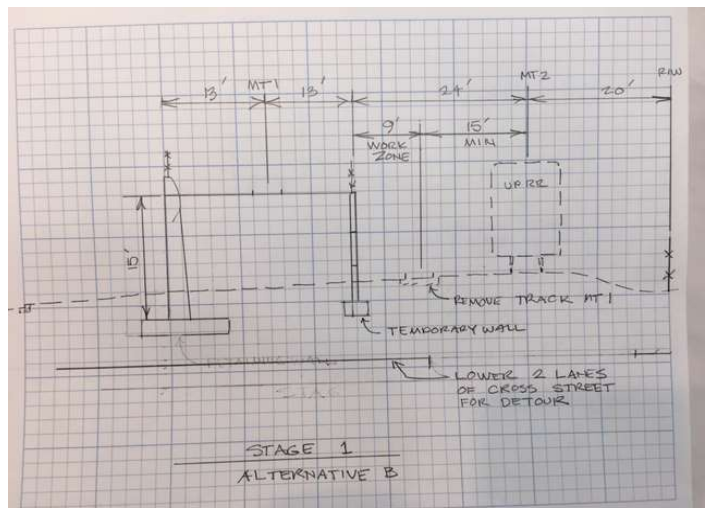 MT1
MT2
R/W
13'
13'
24'
20'
9'
WORK
ZONE
15'
MIN
UPRR
15'
REMOVE TRACK MT1
TEMPORARY WALL
LOWER 2 LANES
OF CROSS STREET
FOR DETOUR
STAGE 1
ALTERNATIVE B